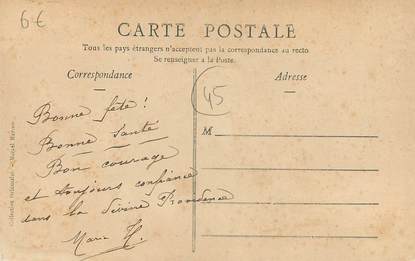 6€
CARTE POSTALE
Tous les pays étrangers n'acceptent pas la correspondance au recto
Se renseigner à la Poste.
Correspondance
Adresse
45
M
Bonne fête!
Bonne Santé
Bon courage
et toujours confiance
dans la Divine Providence
H.
Collection